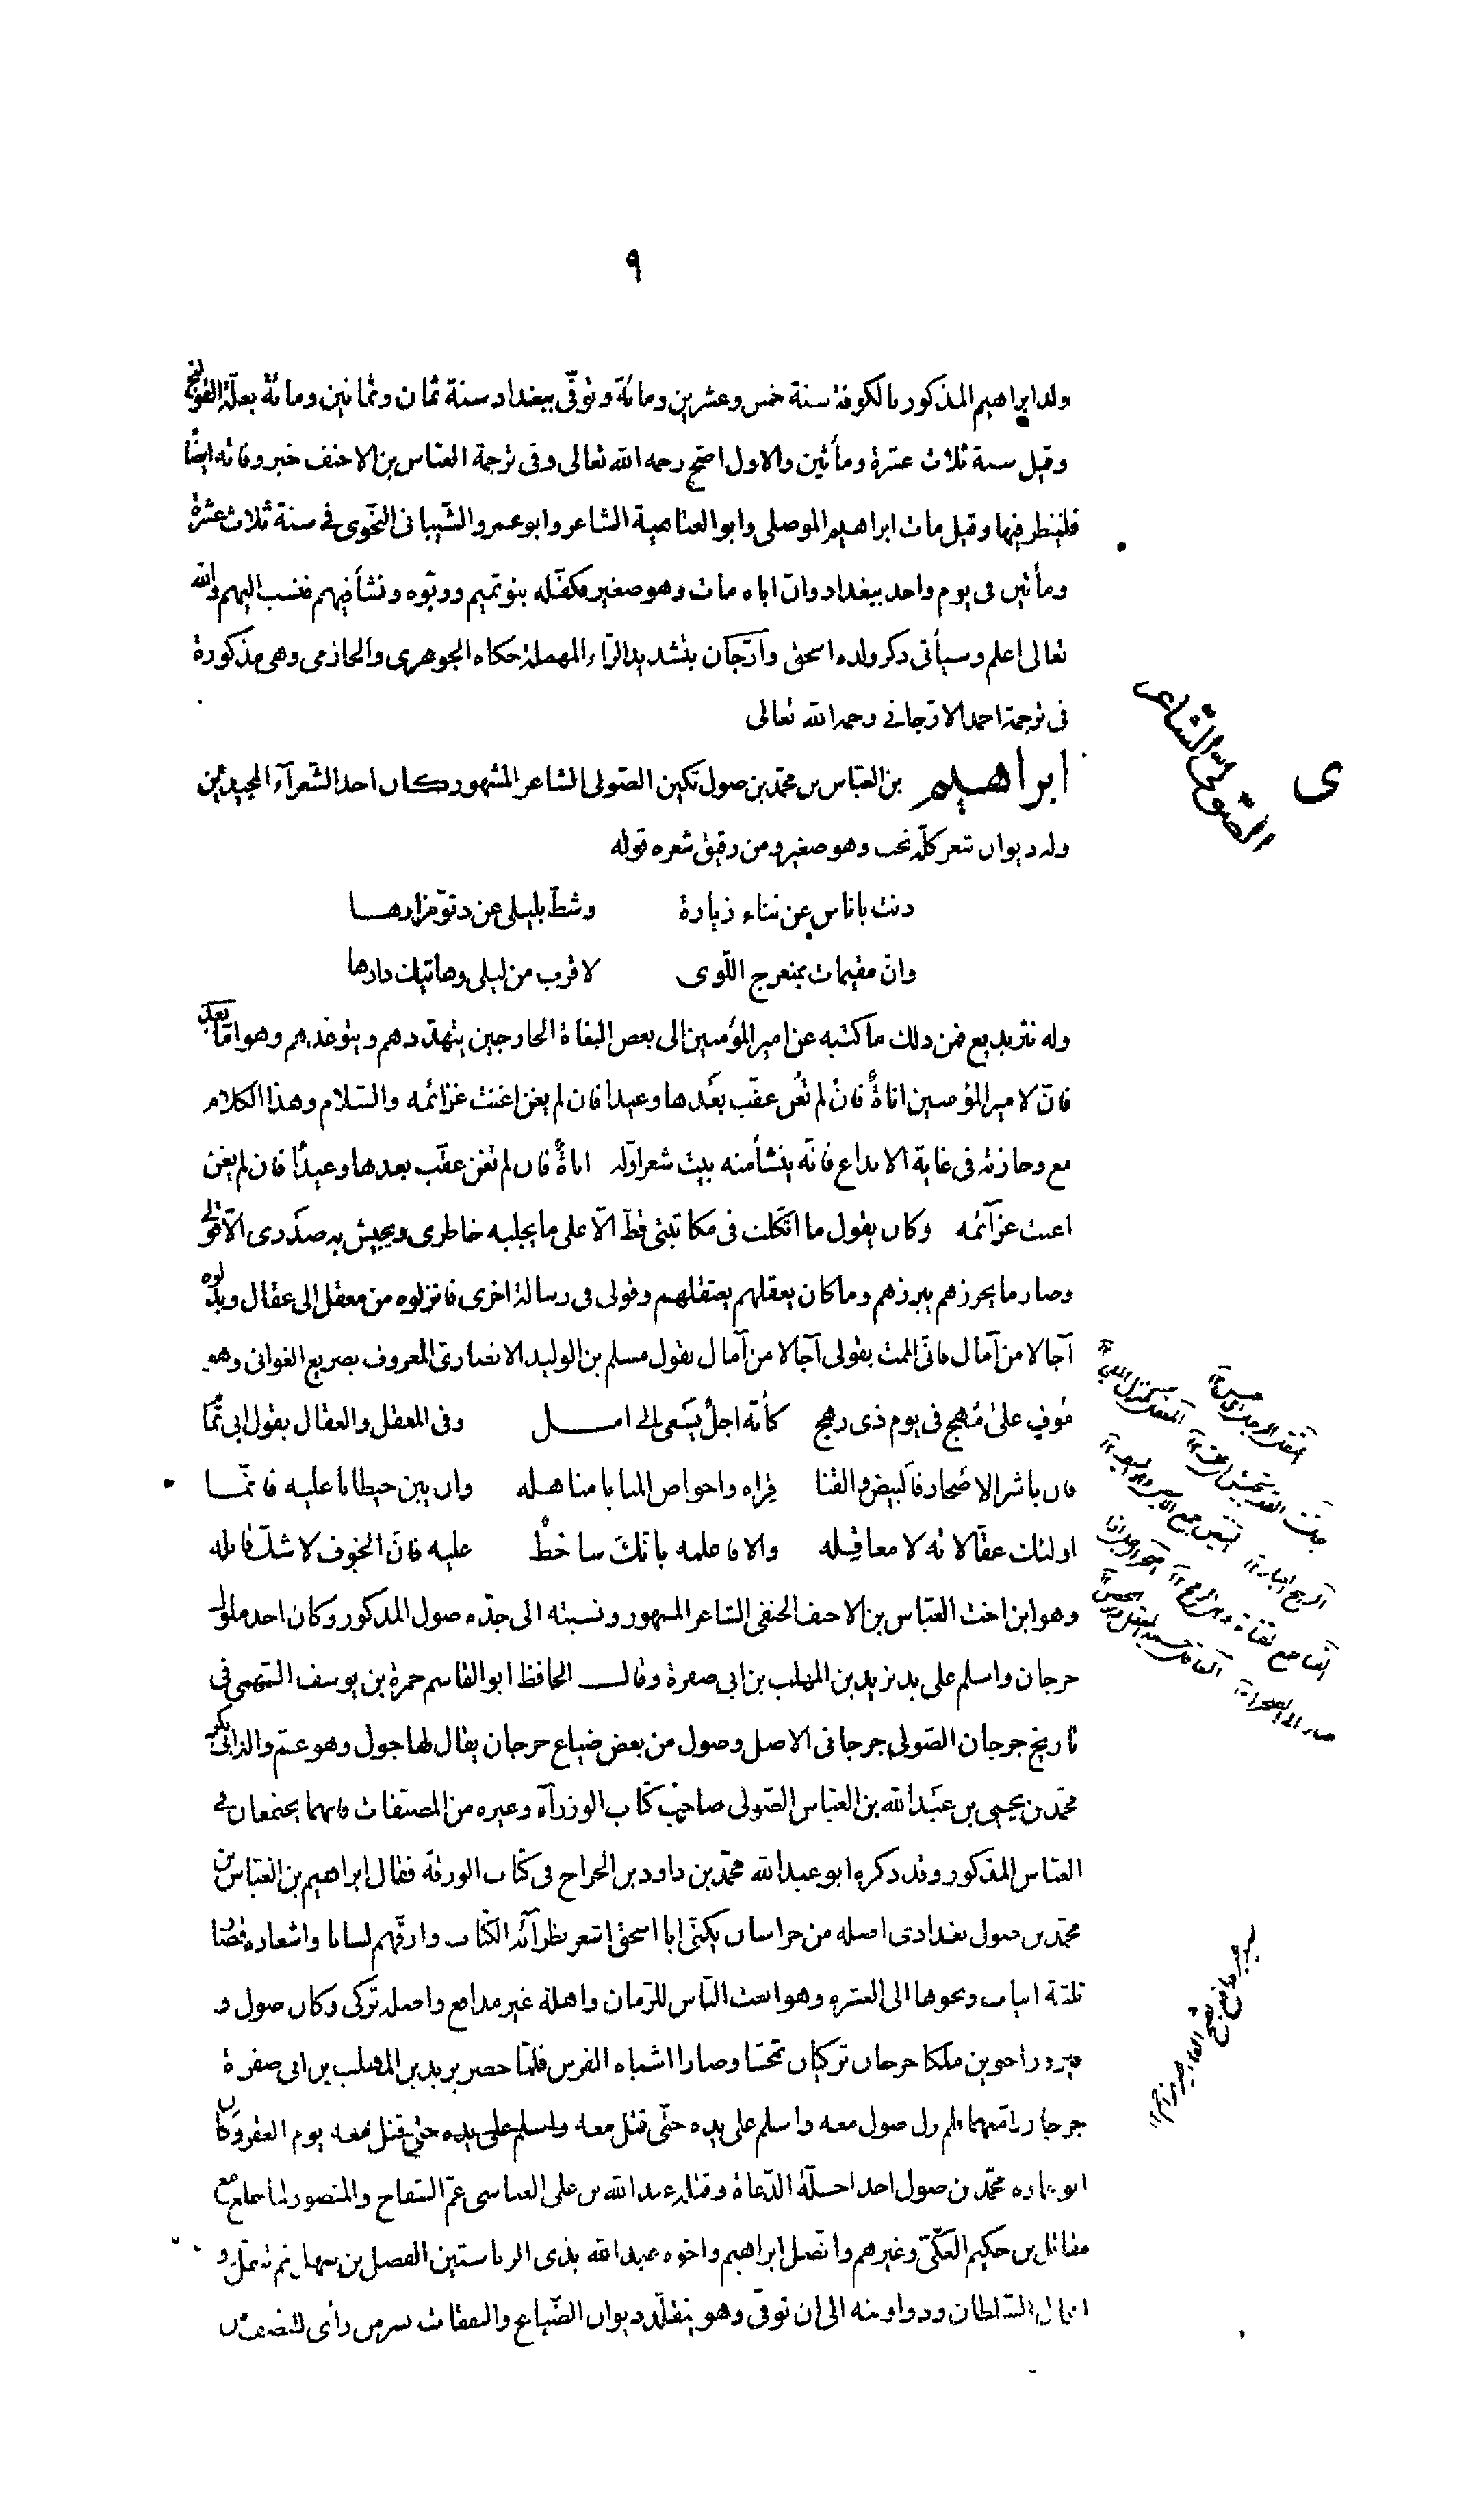 ٩
ولد ابراهيم المذكور بالكوفة سنة خمس وعشرين ومائة وتوفّى ببغداد سنة ثمان وثمانين ومائة بعلّة القولنج
وقيل سنة ثلاث عشرة ومأتين والاول اصحّ رحمه الله تعالى وفى ترجمة العبّاس بن الاحنف خبر وفاته ايضًا
فلينظر فيها وقيل مات ابراهيم الموصلى وابو العتاهية الشاعر وابو عمرو الشّيبانى النّحوى فى سنة ثلاث عشرة
ومأتين فى يوم واحد ببغداد وانّ اباه مات وهو صغير فكفّله بنو تميم وربّوه ونشأ فيهم فنسب اليهم والله
تعالى اعلم وسيأتى ذكر ولده اسحق وارّجان بتشديد الرّاء المهملة حكاه الجوهرى والحازمى وهى مذكورة
فى ترجمة احمد الارّجانى رحمه الله تعالى
الصّولىّ الشّاعر
ى
ابراهيم بن العبّاس بن محمّد بن صول تكين الصّولى الشاعر المشهور كان احد الشّعرآء المجيدين
وله ديوان شعر كلّه نخب وهو صغير ومن رقيق شعره قوله
دنت باناس عن تناء زيارة وشطّ بليلى عن دنوّ مزارها
وانّ مقيمات بمنعرج اللّوى لاقرب من ليلى وهاتيك دارها
وله نثر بديع فمن ذلك ما كتبه عن امير المؤمنين الى بعض البغاة الخارجين يتهدّدهم ويتوعّدهم وهو امّا بعد
فانّ لامير المؤمنين اناةً فان لم تغن عقّب بعدها وعيدا فان لم يغن اغنت عزائمه والسّلام وهذا الكلام
مع وجازته فى غاية الابداع فانّه ينشأ منه بيت شعر اوّله اناةً فان لم تغن عقّب بعدها وعيدًا فان لم يغن
اغنت عزآئمه وكان يقول ما اتّكلت فى مكاتبتى قطّ الّا على ما يجلبه خاطرى ويجيش به صدرى الّا قولى
وصار ما يحرزهم يبرزهم وما كان يعقلهم يعتقلهم وقولى فى رسالة اخرى فانزلوه من معقل الى عقال وبدّلوه
آجالا من آمال فانّى الممت بقولى آجالا من آمال بقول مسلم بن الوليد الانصارىّ المعروف بصريع الغوانى وهو
مُوفٍ علىٰ مُهجٍ فى يوم ذى رهج كأنّه اجلٌ يسعى الى امل وفى المعقل والعقال بقول ابى تمّا
فان باشر الاصحار فالبيض والقنا قراه واحواض المنايا مناهله وان يبن حيطانا عليه فانّما
اولئك عقّالاته لا معاقله والا فاعلمه بانّك ساخطٌ عليه فانّ الخوف لا شكّ قاتله
وهو ابن اخت العبّاس بن الاحنف الحنفى الشاعر المشهور ونسبته الى جدّه صول المذكور وكان احد ملوك
جرجان واسلم على يد يزيد بن المهلب بن ابى صفرة وقال الحافظ ابو القاسم حمزة بن يوسف السّهمى فى
تاريخ جرجان الصّولى جرجانى الاصل وصول من بعض ضياع جرجان يقال لها جول وهو عمّ والد ابى بكر
محمّد بن يحيى بن عبد الله بن العبّاس الصّولى صاحب كتاب الوزرآء وغيره من المصنّفات فانهما يجتمعان فى
العبّاس المذكور وقد ذكره ابو عبد الله محمّد بن داود بن الجراح فى كتاب الورقة فقال ابراهيم بن العبّاس بن
محمّد بن صول بغدادى اصله من خراسان يكنّى ابا اسحق اشعر نظرآئه الكتّاب وارقّهم لسانا واشعاره قصار
ثلثة ابيات ونحوها الى العشره وهو انعت النّاس للزّمان واهله غير مدافع واصله تركى وكان صول و
فيروز اخوين ملكا جرجان تركيّان تمجّسا وصارا اشباه الفرس فلمّا حضر يزيد بن المهلب بن ابى صفرة
جرجان امّنهما فلم يزل صول معه واسلم على يده حتّى قتل معه واسلم على يده حتى قتل معه يوم العقر وكان
ابو عماره محمّد بن صول احد اجلّة الدّعاة وقتله عبد الله بن على العباسى عمّ السّفاح والمنصور لمّا خلع مع
مقاتل بن حكيم العكّىّ وغيرهم واتّصل ابراهيم واخوه عبد الله بذى الرياستين الفضل بن سهل ثم تنقّل فى
اعمال السّلطان ودواوينه الى ان توفّى وهو يتقلّد ديوان الضّياع والنفقات بسر من رأى للنصف من